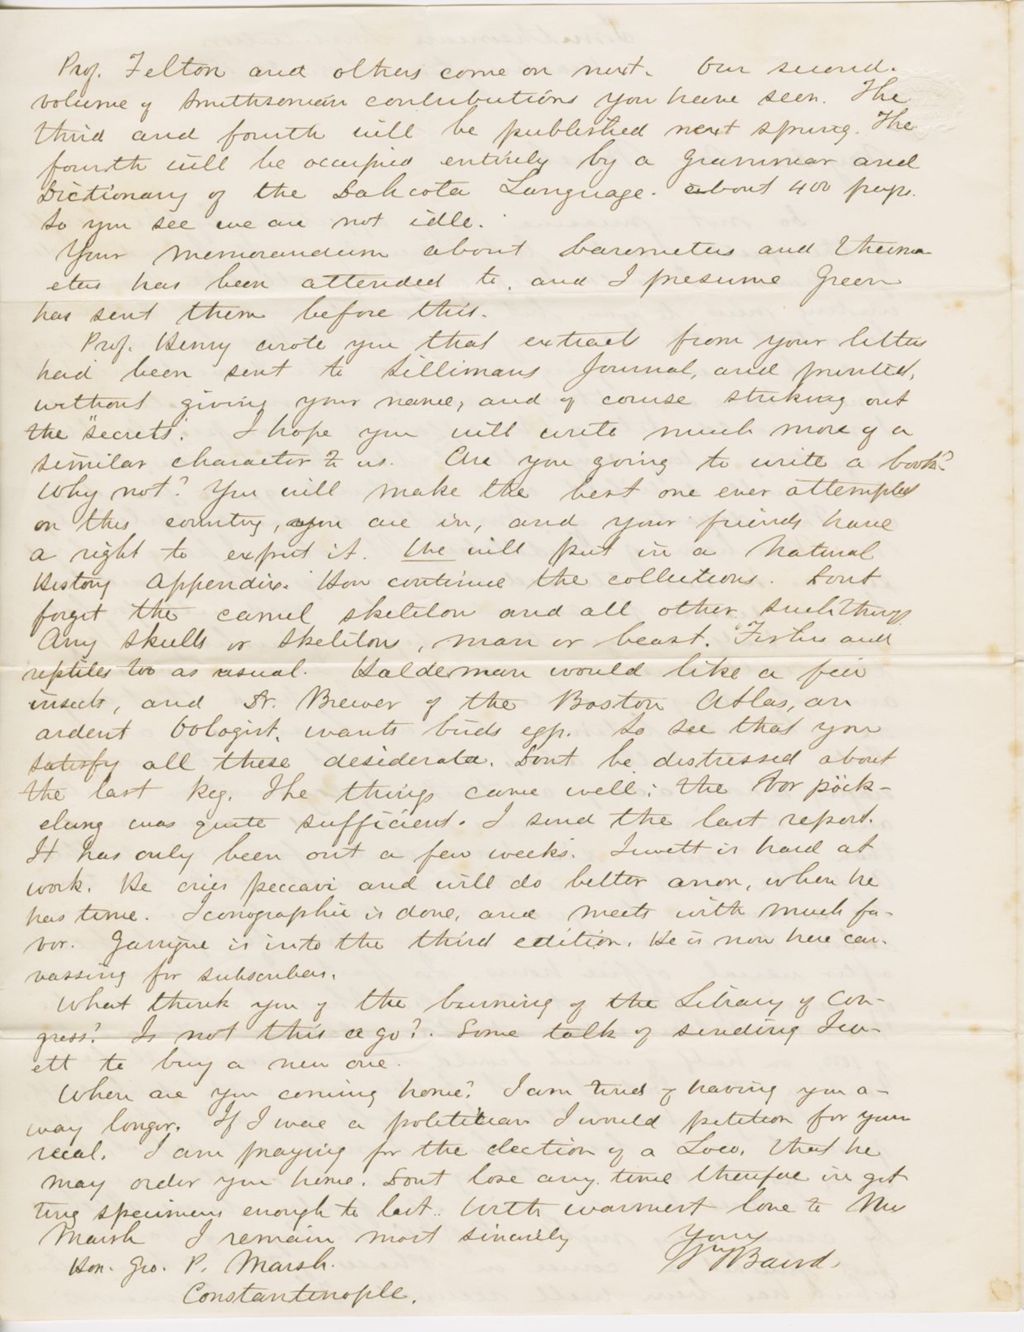 Prof. Felton and others come on next. Our second
volume of Smithsonian contributions you have seen. The
third and fourth will be published next spring. The
fourth will be occupied entirely by a Grammar and
Dictionary of the Dahcota Language. about 400 pages.
So you see we are not idle.
Your memorandum about barometers and thermom
eters has been attended to, and I presume Green
has sent them before this.
Prof. Henry wrote you that extracts from your letters
had been sent to Sillimans Journal, and printed,
without giving your name, and of course striking out
the "secrets". I hope you will write much more of a
similar character to us. Are you going to write a book?
Why not? You will make the best one ever attempted
on this country, you are in, and your friends have
a right to expect it. We will put in a Natural
History appendix. How continue the collections. Dont
forget the camel skeleton and all other such things
Any skulls or skeletons, man or beast. Fishes and
reptiles too as usual. Haldeman would like a few
insects, and Dr. Brewer of the Boston Atlas, an
ardent Oologist, wants birds eggs. So see that you
satisfy all these desiderata. Dont be distressed about
the last keg. The things came well: the
was quite sufficient. I send the last report.
It has only been out a few weeks. Jewett is hard at
work. He cries peccavi and will do better anon, when he
has time. Iconographic is done, and meets with much fa-
vor. Garrigue is into the third edition. He is now here can-
vassing for subscribers.
What think you of the burning of the Library of Con-
gress? Is not this a go? Some talk of sending Jew-
ett to buy a new one.
When are you coming home? I am tired of having you a-
way longer. If I were a politician I would petition for your
recal. I am praying for the election of a Loco, that he
may order you home. Dont lose any time therefore in get
ting specimens enough to last. With warmest love to Mrs
Marsh I remain most sincerely
Yours
Hon. Geo. P. Marsh.
Baird.
Constantinople.